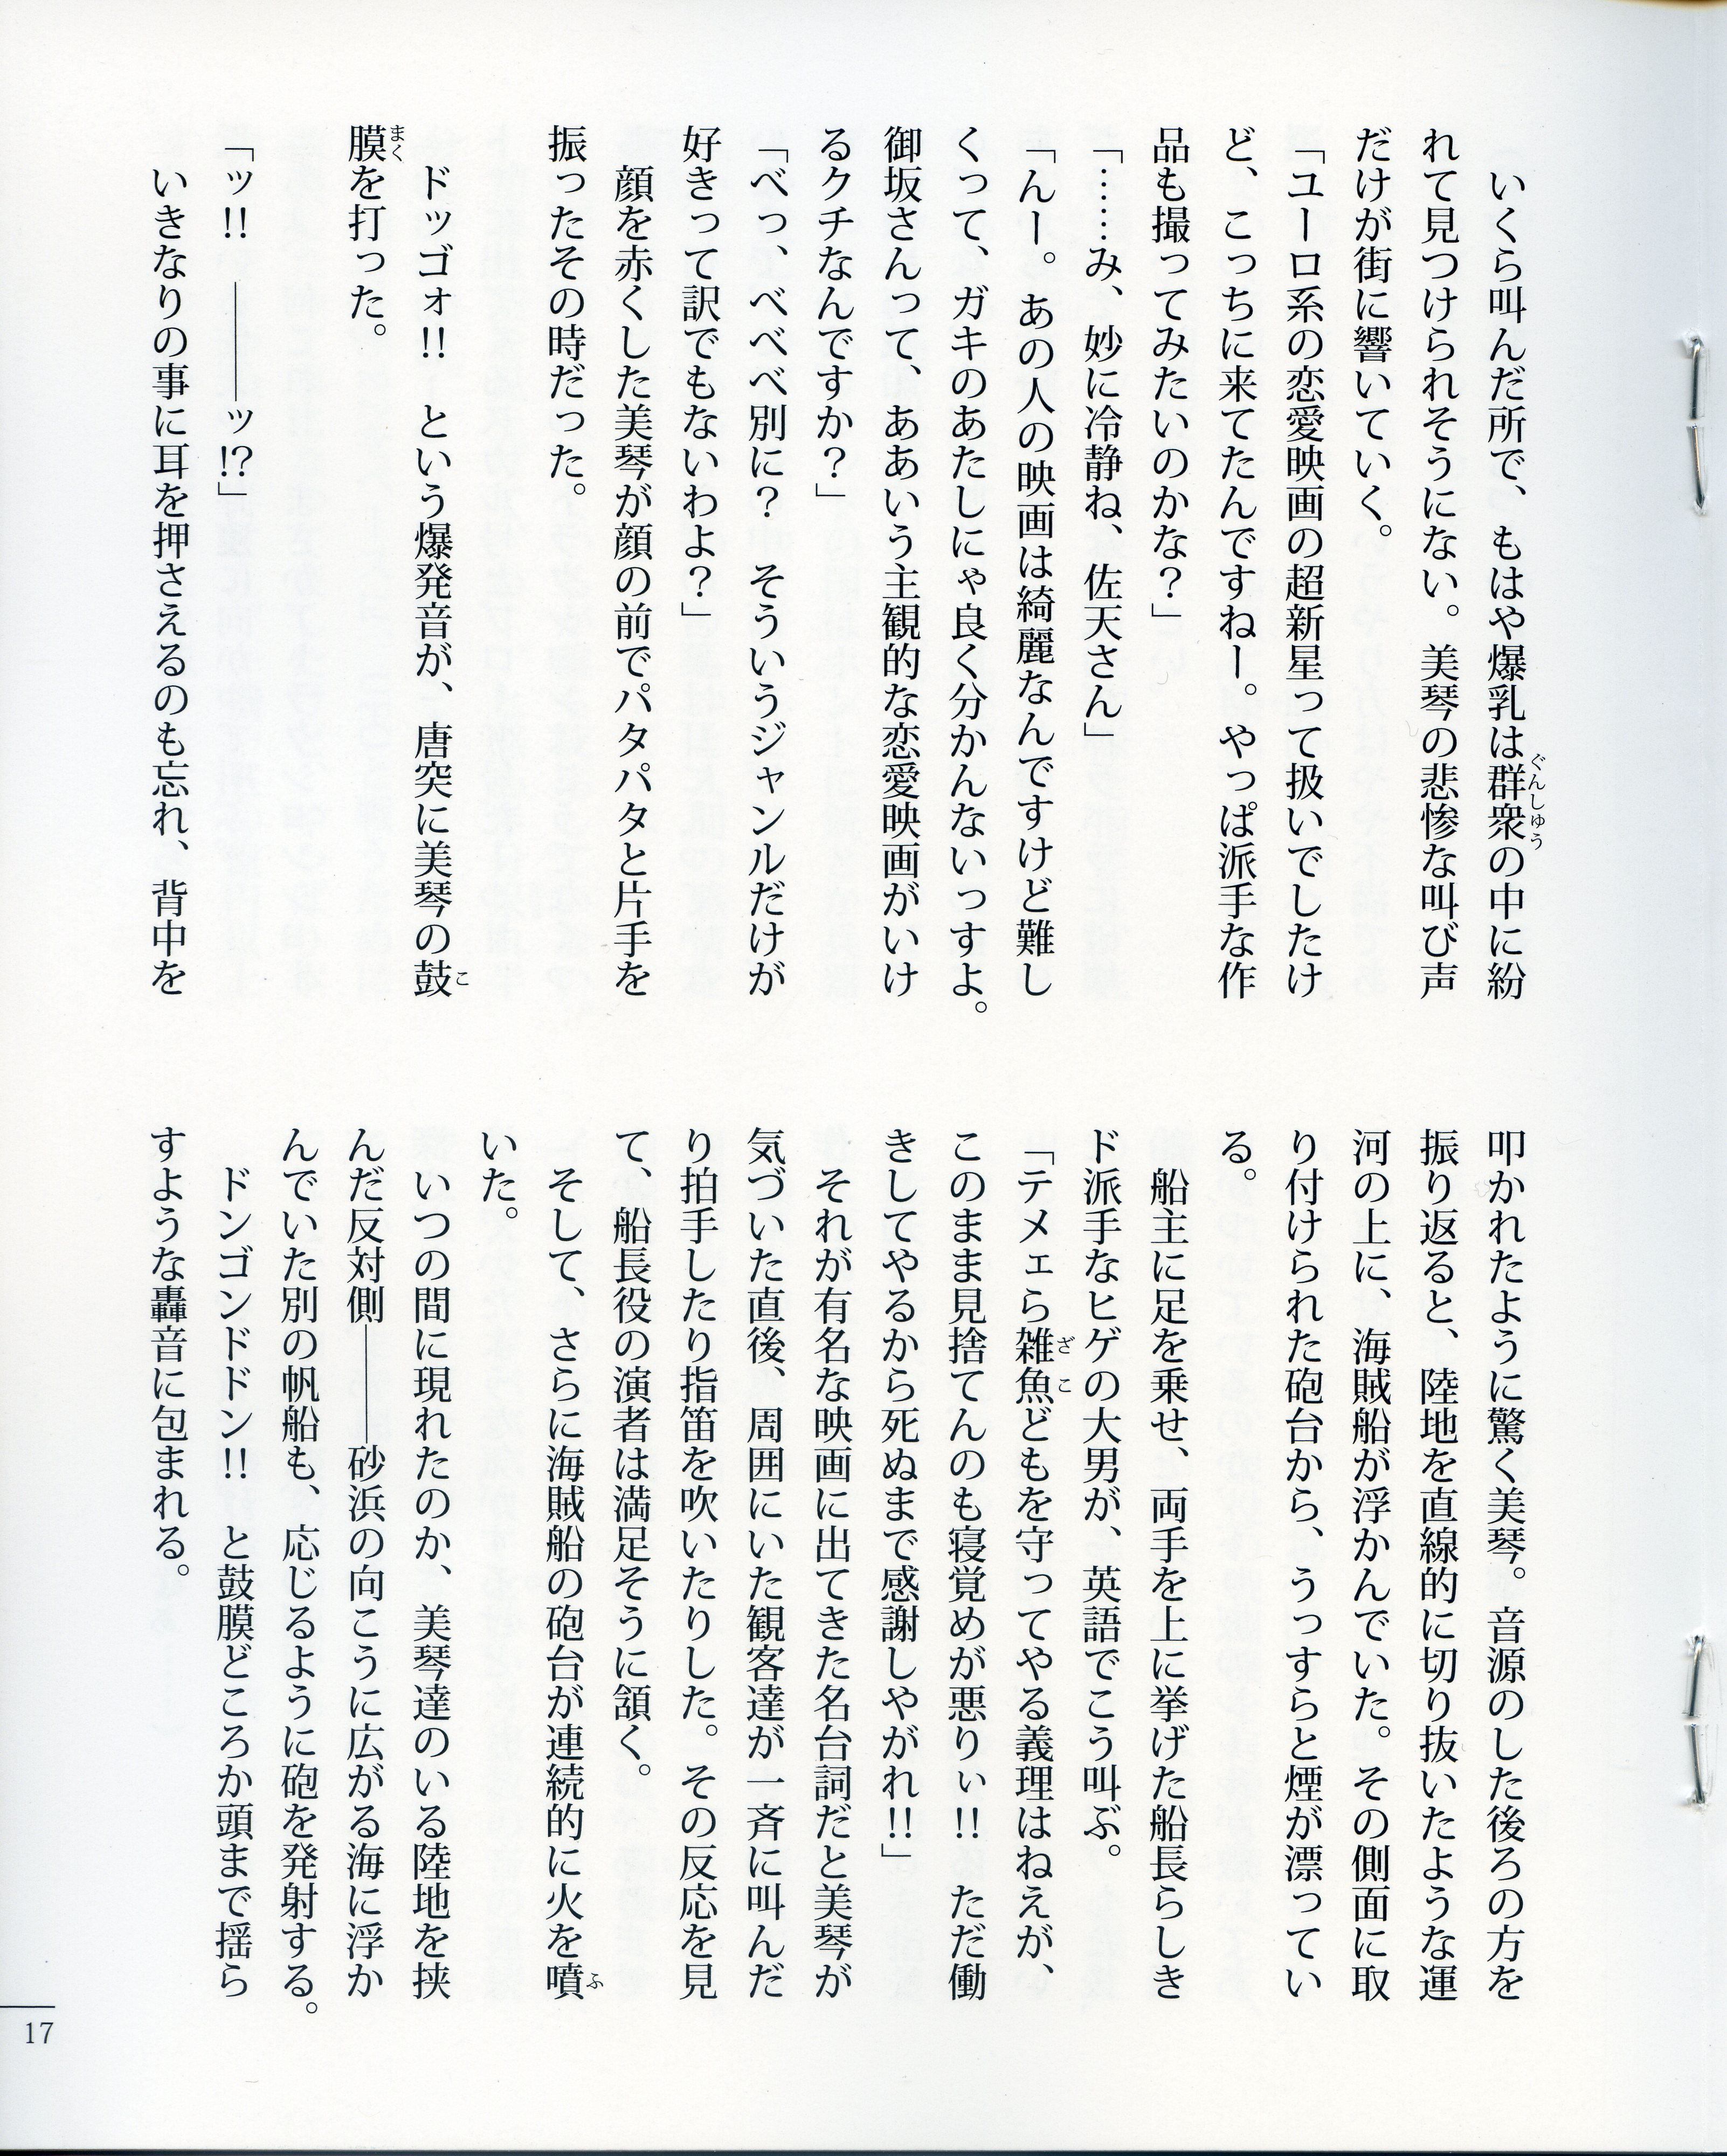 いくら叫んだ所で、もはや爆乳は群衆の中に紛
れて見つけられそうにない。美琴の悲惨な叫び声
だけが街に響いていく。
「ユーロ系の恋愛映画の超新星って扱いでしたけ
ど、こっちに来てたんですねー。やっぱ派手な作
品も撮ってみたいのかな？」
「……み、妙に冷静ね、佐天さん」
「んー。あの人の映画は綺麗なんですけど難し
くって、ガキのあたしにゃ良く分かんないっすよ。
御坂さんって、ああいう主観的な恋愛映画がいけ
るクチなんですか？」
「べっ、べべべ別に？　そういうジャンルだけが
好きって訳でもないわよ？」
　顔を赤くした美琴が顔の前でパタパタと片手を
振ったその時だった。
　ドッゴォ!!　という爆発音が、唐突に美琴の鼓
膜を打った。
「ッ!!　―――ッ!?」
　いきなりの事に耳を押さえるのも忘れ、背中を
叩かれたように驚く美琴。音源のした後ろの方を
振り返ると、陸地を直線的に切り抜いたような運
河の上に、海賊船が浮かんでいた。その側面に取
り付けられた砲台から、うっすらと煙が漂ってい
る。
　船主に足を乗せ、両手を上に挙げた船長らしき
ド派手なヒゲの大男が、英語でこう叫ぶ。
「テメェら雑魚どもを守ってやる義理はねえが、
このまま見捨てんのも寝覚めが悪りぃ!!　ただ働
きしてやるから死ぬまで感謝しやがれ!!」
　それが有名な映画に出てきた名台詞だと美琴が
気づいた直後、周囲にいた観客達が一斉に叫んだ
り拍手したり指笛を吹いたりした。その反応を見
て、船長役の演者は満足そうに頷く。
　そして、さらに海賊船の砲台が連続的に火を噴
いた。
　いつの間に現れたのか、美琴達のいる陸地を挟
んだ反対側―――砂浜の向こうに広がる海に浮か
んでいた別の帆船も、応じるように砲を発射する。
　ドンゴンドドン!!　と鼓膜どころか頭まで揺ら
すような轟音に包まれる。
ぐんしゅう
こ
まく
ざこ
ふ
17